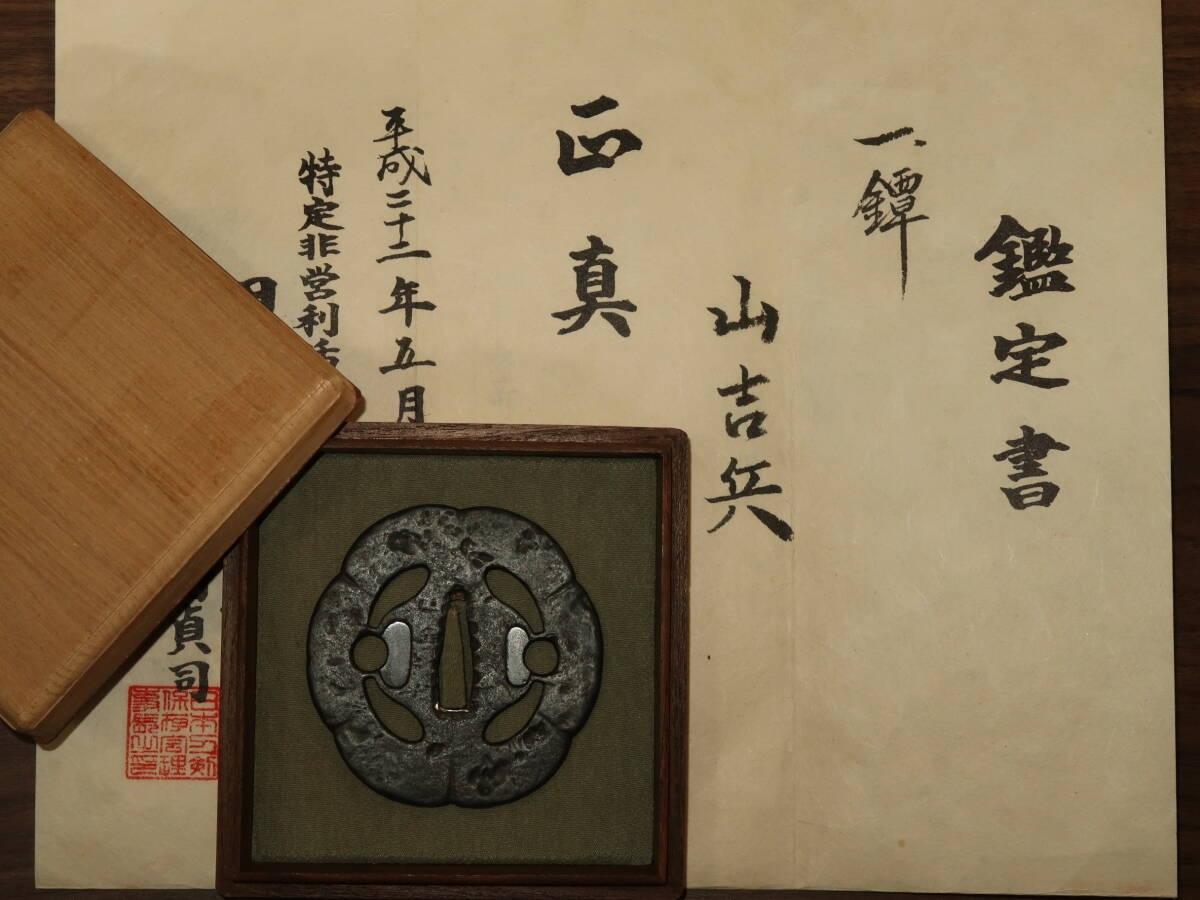 鑑定書
一、鐔
山吉兵
正真
平成二十二年五月
特定非営利活
貞司
日本刀剣
保存管理